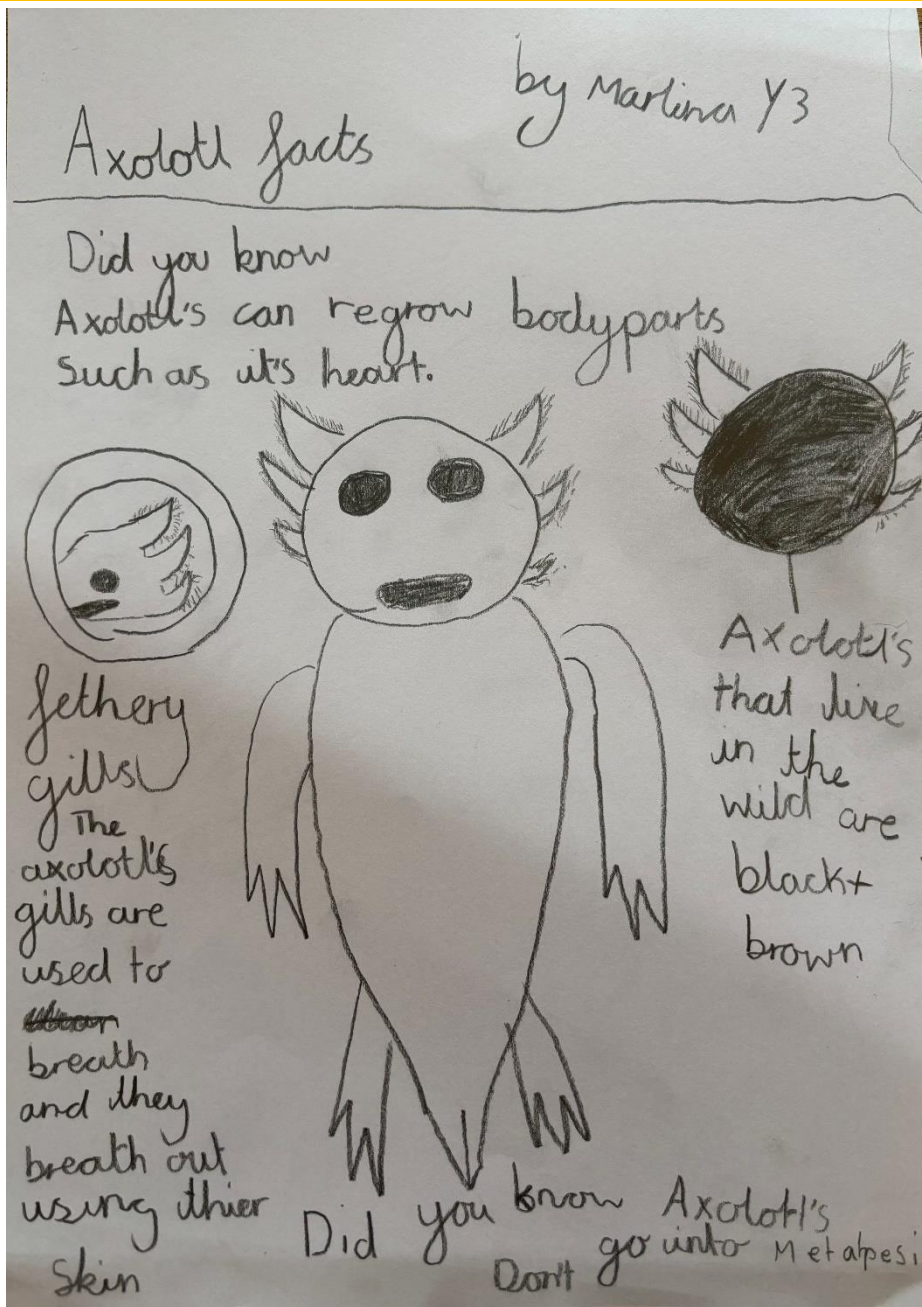 by Martina Y3
Axolotl facts
Did you know
Axolotl's can regrow bodyparts
Such as it's heart.
fethery
gills
The
axolotl's
gills are
used to
breath
and they
breath out
using thier
Skin
Axolotl's
that live
in the
wild are
black+
brown
Did you know Axolotl's
Don't go into Metalpesi